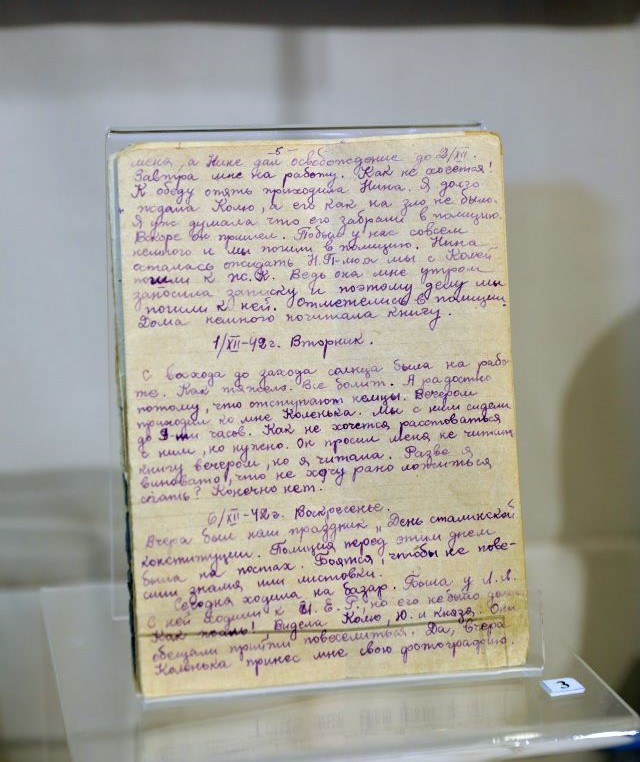 -5-
меня, а Нине дал освобождение до 2/XII.
Завтра мне на работу. Как не хочется!
К обеду опять приходила Нина. Я долго
ждала Колю, а его как на зло не было.
Я уж думала что его забрали в полицию.
Вскоре он пришел. Побыл у нас совсем
немного и мы пошли в полицию. Нина
осталась ожидать Н. П-люк а мы с Колей
пошли к Ж.К. Ведь она мне утром
заносила записку и поэтому делу мы
пошли к ней. Отметелись в полиции.
Дома немного почитала книгу.
1/XII-42г. Вторник.
С восхода до захода солнца была на рабо-
те. Как тяжело. Все болит. А радостно
потому, что отступают немцы. Вечером
приходил ко мне Коленька. Мы с ним сидели
до 9-ти часов. Как не хочется расставаться
с ним, но нужно. Он просил меня не читать
книгу вечером, но я читала. Разве я
виновата, что не хочу рано ложиться
спать? Конечно нет.
6/XII-42г. Воскресенье.
Вчера был наш праздник „День сталинской
конституции. Полиция перед этим днем
была на постах. Боятся, чтобы не пове-
сили знамя или листовки.
Сегодня ходила на базар. Была у Л. Л.
С ней ходили к И. Е. Г., но его не было дома.
Как жаль! Видела Колю, Ю. и Князя. Они
обещали прийти повеселиться. Да, Вчера
Коленька принес мне свою фотографию.
3